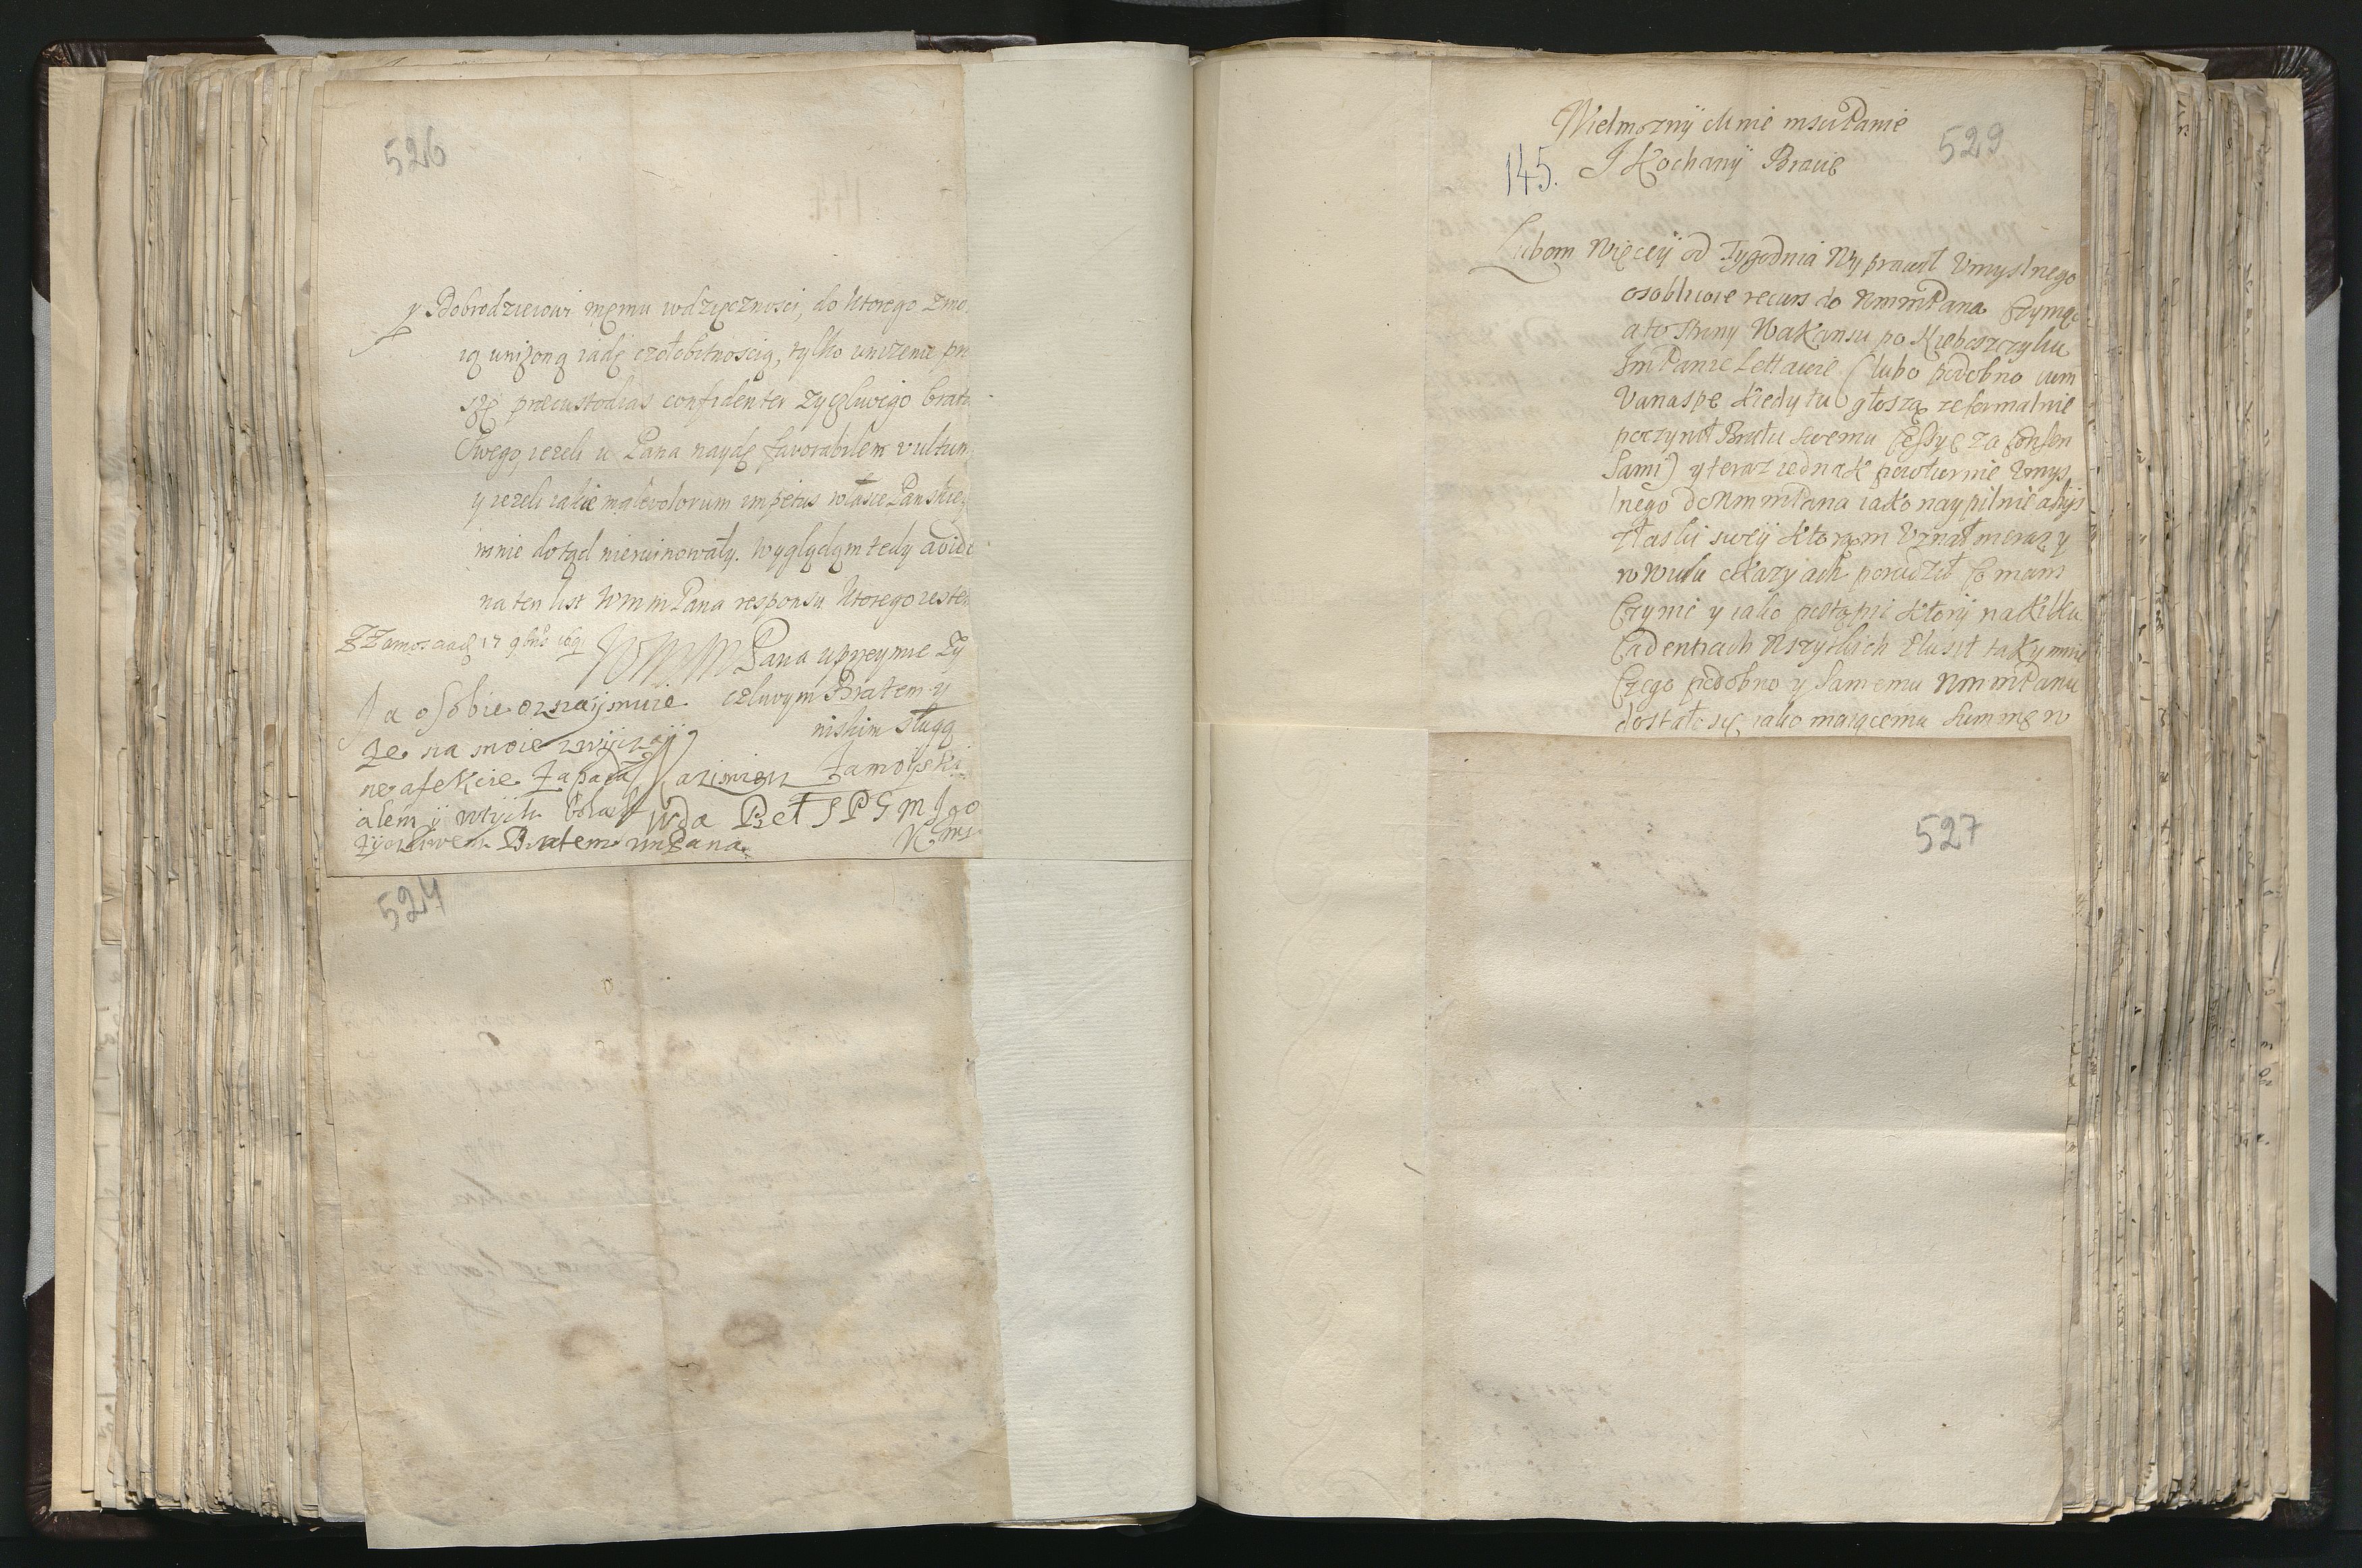 526
y Dobrodzieiowi memu wdzięcznosci, do ktorego zmo
ią uniżoną iadę czołobitnoscią, tylko unizenie pro
szę præcustodias confidenter zyczliwego brata
Swego, iezeli u Pana naydę favorabilem vultum
y iezeli iakie malevolorum impetus w łasce Panskiey
mnie dotąd nieruinowały. Wyglądam tedy avide
na ten list WmmPana responsu ktorego iestem
Z Zamoscia 17 9bris 1691
WMMPana uprzeymie zy
czliwym Bratem y
niskim sługą
Zamoÿski
Ia o sobie oznaÿmuie
że na moie
ne afekcie
alem ÿ
życzliwem Bratem WmPana
524
Wielmoznÿ Mnie msciPanie
I Kochanÿ Bracie
529
145.
Lubom więceÿ od Tygodnia wyprawił Umyslnego
osobliwie recurs do WmmPana Czymąc
a to strony Wakansu po Krebosczyku
ImPanie Lettawie (lubo podobno cum
Vana spe kiedy tu głoszą ze formalnie
poczynił Bratu swemu Cessye za Consen
sami) y teraz iednak powtornie Umys
lnego do WmmPana iako naypilnie
z łaski sweÿ ktorąm Uznał nieraz y
w wielu okazyach poradził Co mam
Czynic y iako postąpic Ktorÿ na kilku
Cadentiach Wszytkich słusił tak y mnie
Czego podobno y samemu WmmPanu
dostało się, iako maiącemu Summę w
527